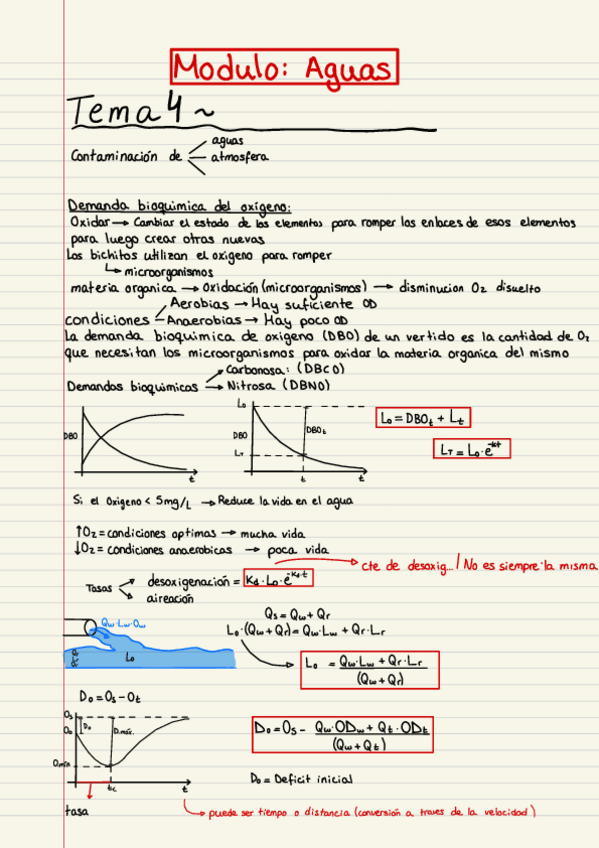 Modulo: Aguas
Tema 4 ~
Contaminación de
aguas
atmosfera
Demanda bioquimica del oxigeno:
Oxidar → Cambiar el estado de los elementos para romper los enlaces de esos elementos
para luego crear otras nuevas
Los bichitos utilizan el oxigeno para romper
↳ microorganismos
materia organica → Oxidación (microorganismos) → disminucion O₂ disuelto
condiciones
Aerobias → Hay suficiente OD
Anaerobias → Hay poco OD
La demanda bioquimica de oxigeno (DBO) de un vertido es la cantidad de O₂
que necesitan los microorganismos para oxidar la materia organica del mismo
Demandas bioquimicas
Carbonosa: (DBCO)
Nitrosa (DBNO)
DBO
t
L₀
DBO
Lₜ
DBOₜ
t
t
L₀ = DBOₜ + Lₜ
L_T = L₀·e^-kt
Si el Oxigeno < 5mg/L → Reduce la vida en el agua
↑O₂ = condiciones optimas → mucha vida
↓O₂ = condiciones anaerobicas → poca vida
cte de desoxig.../ No es siempre la misma
Tasas
desoxigenación = K_d·L₀·e^-K_d·t
aireación
Qs = Qw + Qr
L₀·(Qw + Qr) = Qw·Lw + Qr·Lr
Qw·Lw·Ow
L₀
L₀ = Qw·Lw + Qr·Lr / (Qw + Qr)
D₀ = Os - Ot
Os
O₀
D₀
D.máx.
O.mín
tc
t
D₀ = Os - Qw·ODw + Qt·ODt / (Qw + Qt)
D₀ = Deficit inicial
tasa
puede ser tiempo o distancia (conversión a traves de la velocidad)